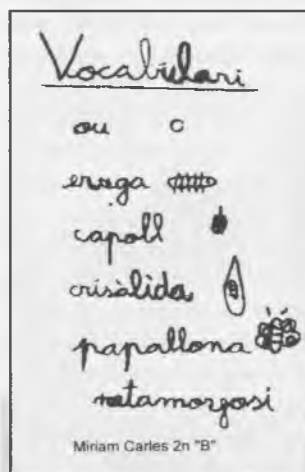 Vocabulari
ou
eruga
capoll
crisàlida
papallona
metamorfosi
Miriam Carles 2n "B"